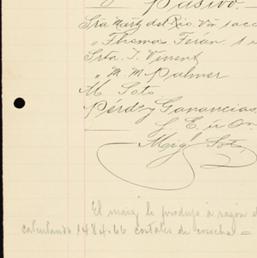 Pasivo
Sra Martz del Rio Va sacc
" Thomas Terán
Srta. J. Vinent
" M. M. Palmer
M. Soto
Pérds y Ganancias
S. E. ú O.
Migl Soto
El maiz le produjo á razon d
calculando 1484.66 costales de cosecha =